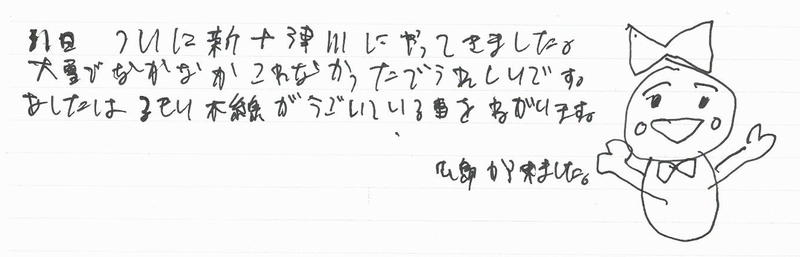 31日 ついに新十津川にやってきました。
大雪でなかなかこれなかったでうれしいです。
あしたは るもい本線がうごいている事をねがいます。
から来ました。